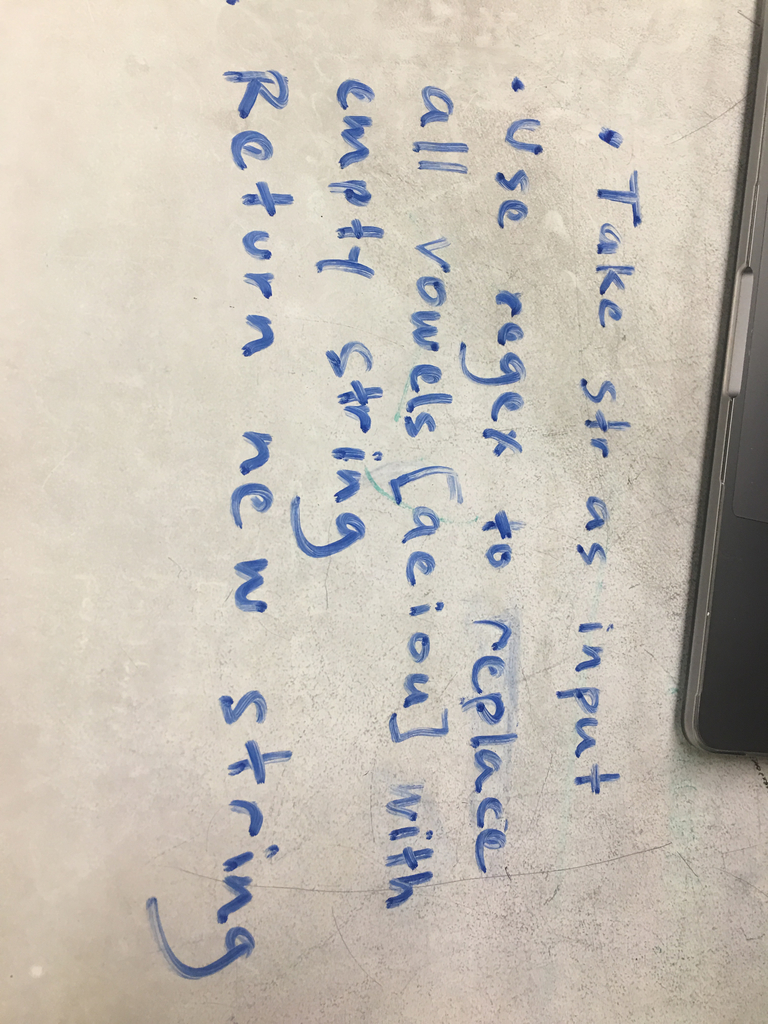 • Take str as input
• Use regex to replace
all vowels [aeiou] with
empty string
• Return new string